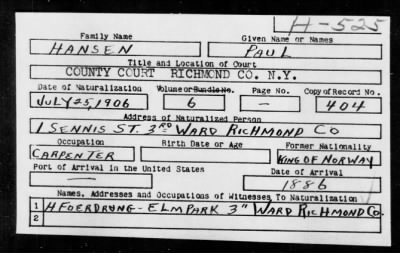 H-525
Family Name Given Name or Names
HANSEN PAUL
Title and Location of Court
COUNTY COURT RICHMOND CO. N.Y.
Date of Naturalization Volume or Bundle No. Page No. Copy of Record No.
JULY 25, 1906 6 — 404
Address of Naturalized Person
1 SENNIS ST. 3RD WARD RICHMOND CO
Occupation Birth Date or Age Former Nationality
CARPENTER KING OF NORWAY
Port of Arrival in the United States Date of Arrival
— 1886
Names, Addresses and Occupations of Witnesses To Naturalization
1 H FOERDRUNG - ELM PARK 3" WARD RICHMOND CO.
2